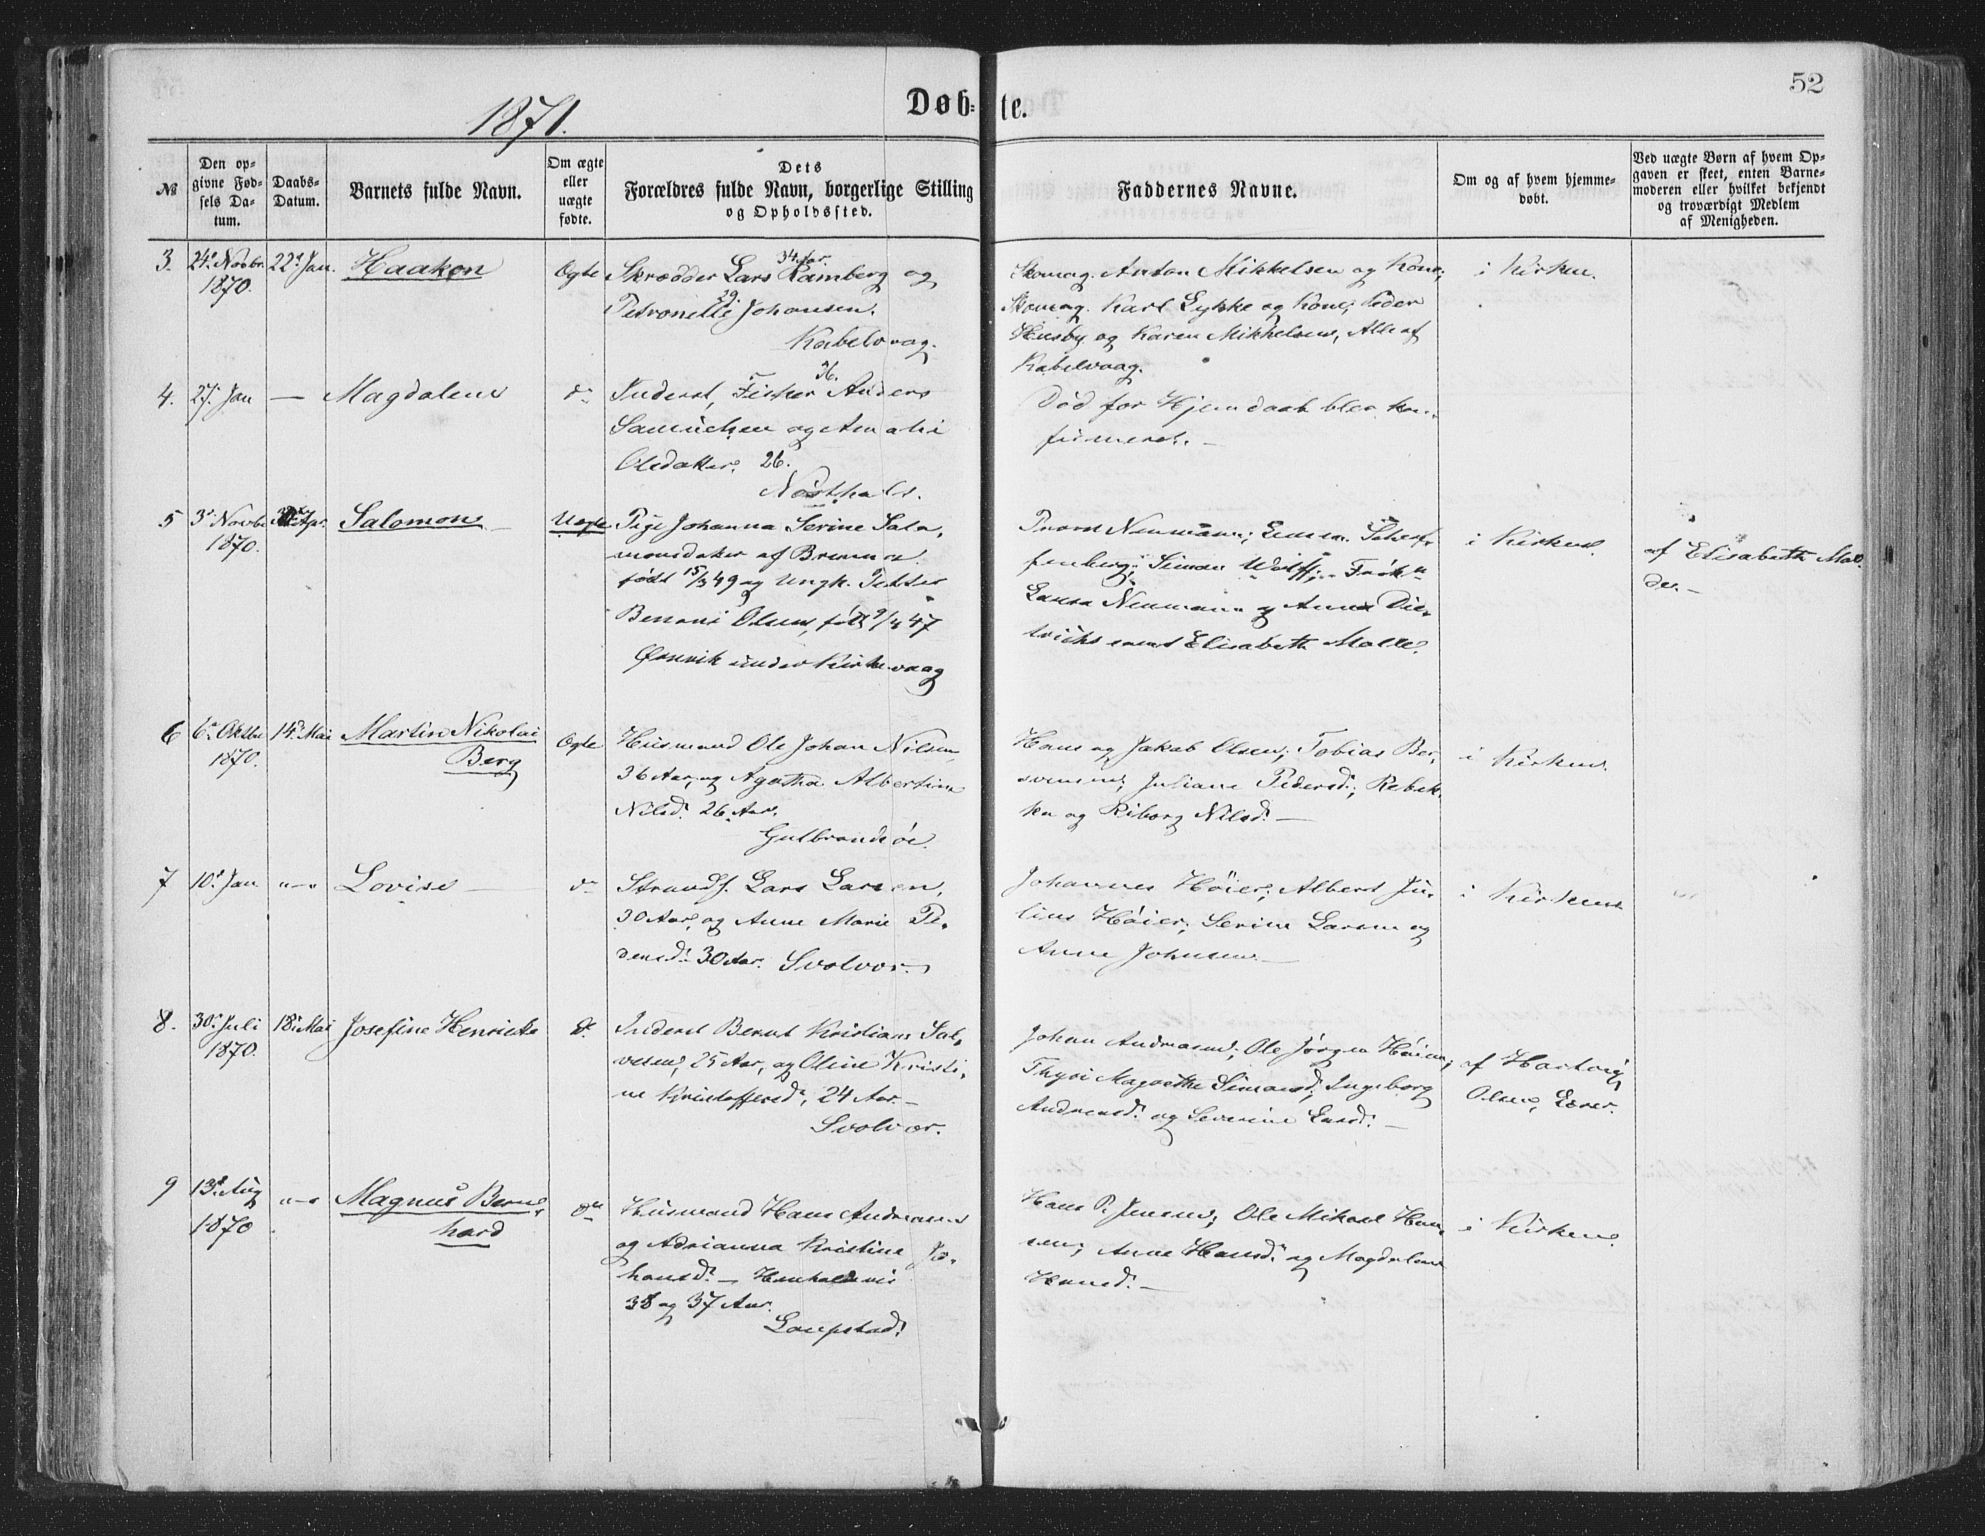 52
1871.
Døb-te.
№
Den op-
givne Fød-
sels Da-
tum.
Daabs-
Datum.
Barnets fulde Navn.
Om ægte
eller
uægte
fødte.
Dets
Forældres fulde Navn, borgerlige Stilling
og Opholdssted.
Faddernes Navne.
Om og af hvem hjemme-
døbt.
Ved uægte Børn af hvem Op-
gaven er skeet, enten Barne-
moderen eller hvilket bekjendt
og troværdigt Medlem
af Menigheden.
3.
24de Novbr.
1870.
22de Jan.
Haakon
Ægte
34 Aar.
Skrædder Lars Ramberg og
29
Petronelle Johansen.
Kabelvaag.
Skomag. Anton Mikkelsen og Kone;
Skomag. Karl Lykke og Kone; Peder
Husby og Karen Mikkelsen, Alle af
Kabelvaag.
i Kirken.
4.
27. Jan
—
Magdalena
do
36.
Inderst, Fisker Anders
Samuelsen og Amalie
Olsdatter. 26.
Død før Hjemdaab blev kon-
firmeret. —
5
3de Novbr
1870.
Apr.
Salomon —
Uægte
Pige Johanna Serine Salo-
monsdatter af Brønnø.
født 15/3 49 og Ungk. Petter
Benoni Olsen, født 9/4 47
Ørsvik under Kirkevaag
Neumann;
Simon Wolff; Frøkn
Laura Neumann og Anna Die-
trichs samt Elisabeth Molle.
i Kirken.
af Elisabeth Mol-
de. —
6
6te Oktbr
1870.
14de Mai
Martin Nikolai
Berg
Ægte
Husmand Ole Johan Nilsen,
36 Aar, og Agatha Albertine
Nilsd. 26 Aar.
Gulbrandsøe.
Hans og Jakob Olsen; Tobias Ber-
svensen; Juliane Pedersd.; Rebek-
ka og Riborg Nilsd. —
i Kirken.
7
10de Jan
"—"
Lovise —
do
Strands. Lars Larsen,
30 Aar, og Anne Marie Pe-
dersd. 30 Aar. Svolvær.
Johannes Høier; Albert Ju-
lius Høier; Serine Larsen og
Anne Johnsen. —
i Kirken
8.
30te Juli
1870.
18de Mai
Josefine Henriete
do
Inderst Bernt Kristian Sal-
vesen, 25 Aar, og Oline Kristi-
ne Kristoffersd., 24 Aar. —
Svolvær.
Johan Andreasen; Ole Jørgen
Magrethe Simonsd; Ingeborg
Andreasd. og Severine Larsd. —
af Hartvig
Olsen, Lærer.
9
13de Aug
1870
"—"
Magnus Bern-
hard
do
Husmand Hans Andreasen
og Adrianna Kristine Jo-
hansd. — Henholdsvis
38 og 37 Aar.
Laupstad.
Hans P. Jensen; Ole Mikael Han-
sen; Anne Hansd. og Magdalena
Hansd. —
i Kirken.